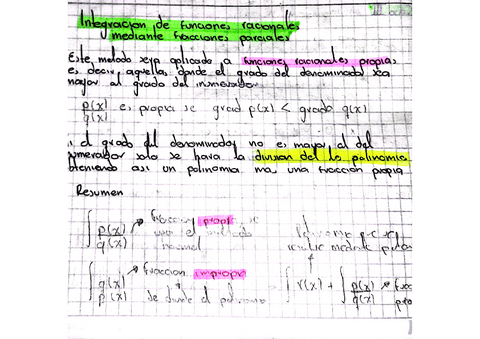 Integracion de funciones racionales
mediante fracciones parciales
Este metodo sera aplicado a funciones racionales propias
es decir, aquellas donde el grado del denominador sea
mayor al grado del numerador
p(x)/q(x) es propia se grad p(x) < grado q(x)
el grado del denominador no es mayor al del
numerador solo se hara la division del lo polinomio
obteniendo asi un polinomio mas una fraccion propia
Resumen
∫ p(x)/q(x) → fraccion propi se
usa el metodo
normal
∫ q(x)/p(x) → fraccion impropi
se divide el polinomio
∫ r(x) + ∫ p(x)/q(x) →